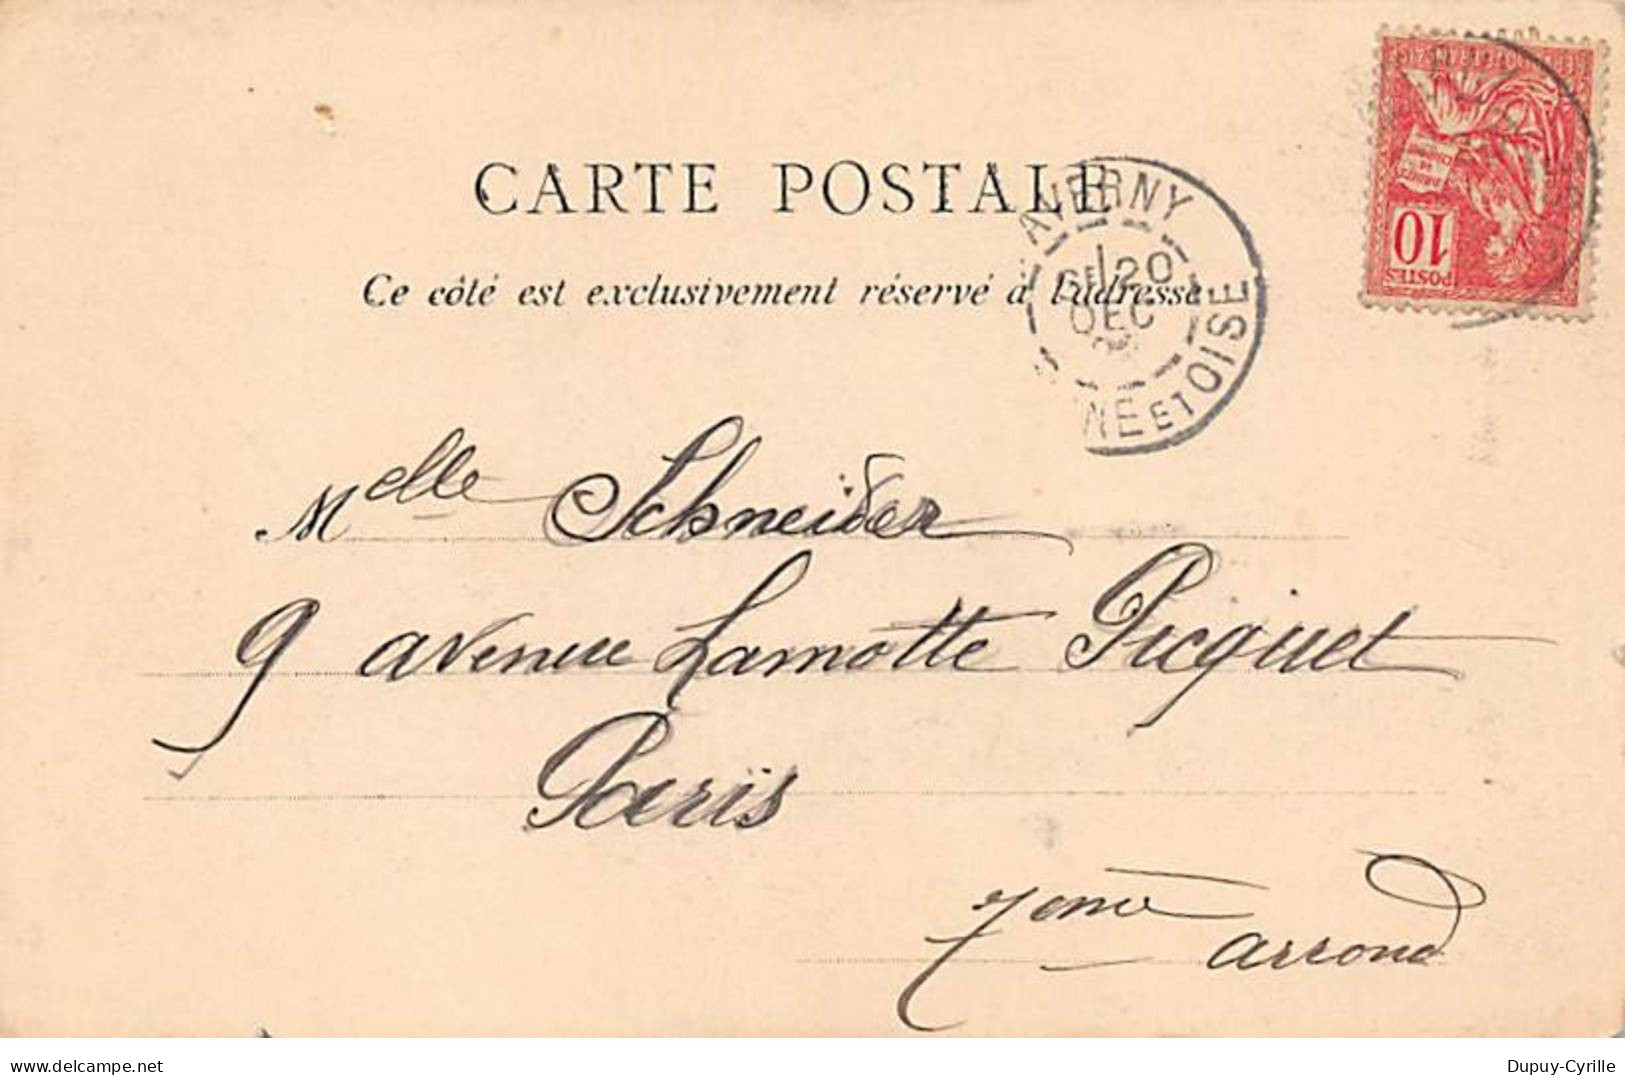 CARTE POSTALE
Ce côté est exclusivement réservé à l'adresse
AVERNY
20
DEC
NE ET OISE
POSTES
10
Melle Schneider
9 avenue Lamotte Picquet
Paris
7eme
arrond
www.delcampe.net
Dupuy-Cyrille